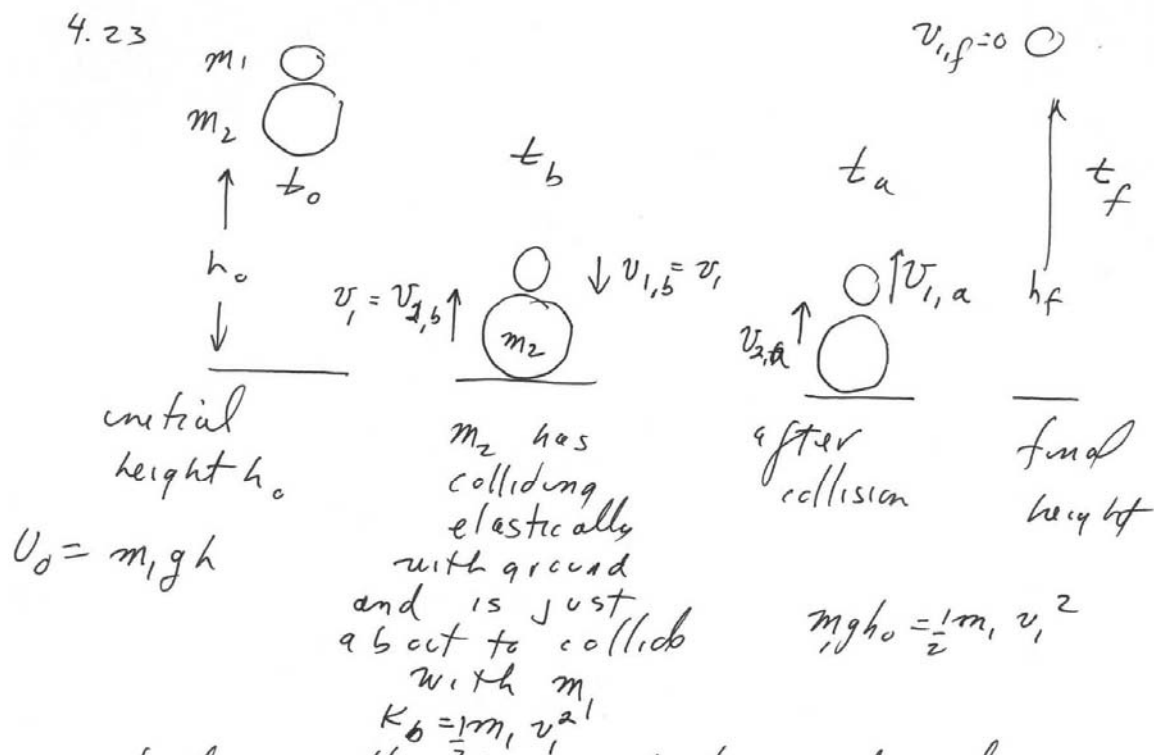 4.23
m₁
m₂
t₀
h₀
initial
height h₀
U₀ = m₁gh
t_b
v₁ = v_{2,b}
m₂
v_{1,b} = v₁
m₂ has
colliding
elastically
with ground
and is just
about to collide
with m₁
K_b = ½m₁v₁²
t_a
v_{1,a}
v_{2,a}
after
collision
m₁gh₀ = ½m₁v₁²
v_{1,f} = 0
t_f
h_f
final
height